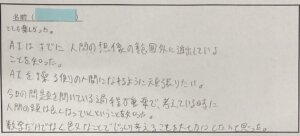 名前（
とても楽しかった。
AIはすでに人間の想像の範囲外に進出している
ことを知った。
AIを操る側の人間になれるように頑張りたい。
今日の問題を聞いている過程が重要で、考えている時に
人間の頭は良くなっていくということを知った。
数学だけでなく色々なことでじっくり考えることを大切にしたいと思った。